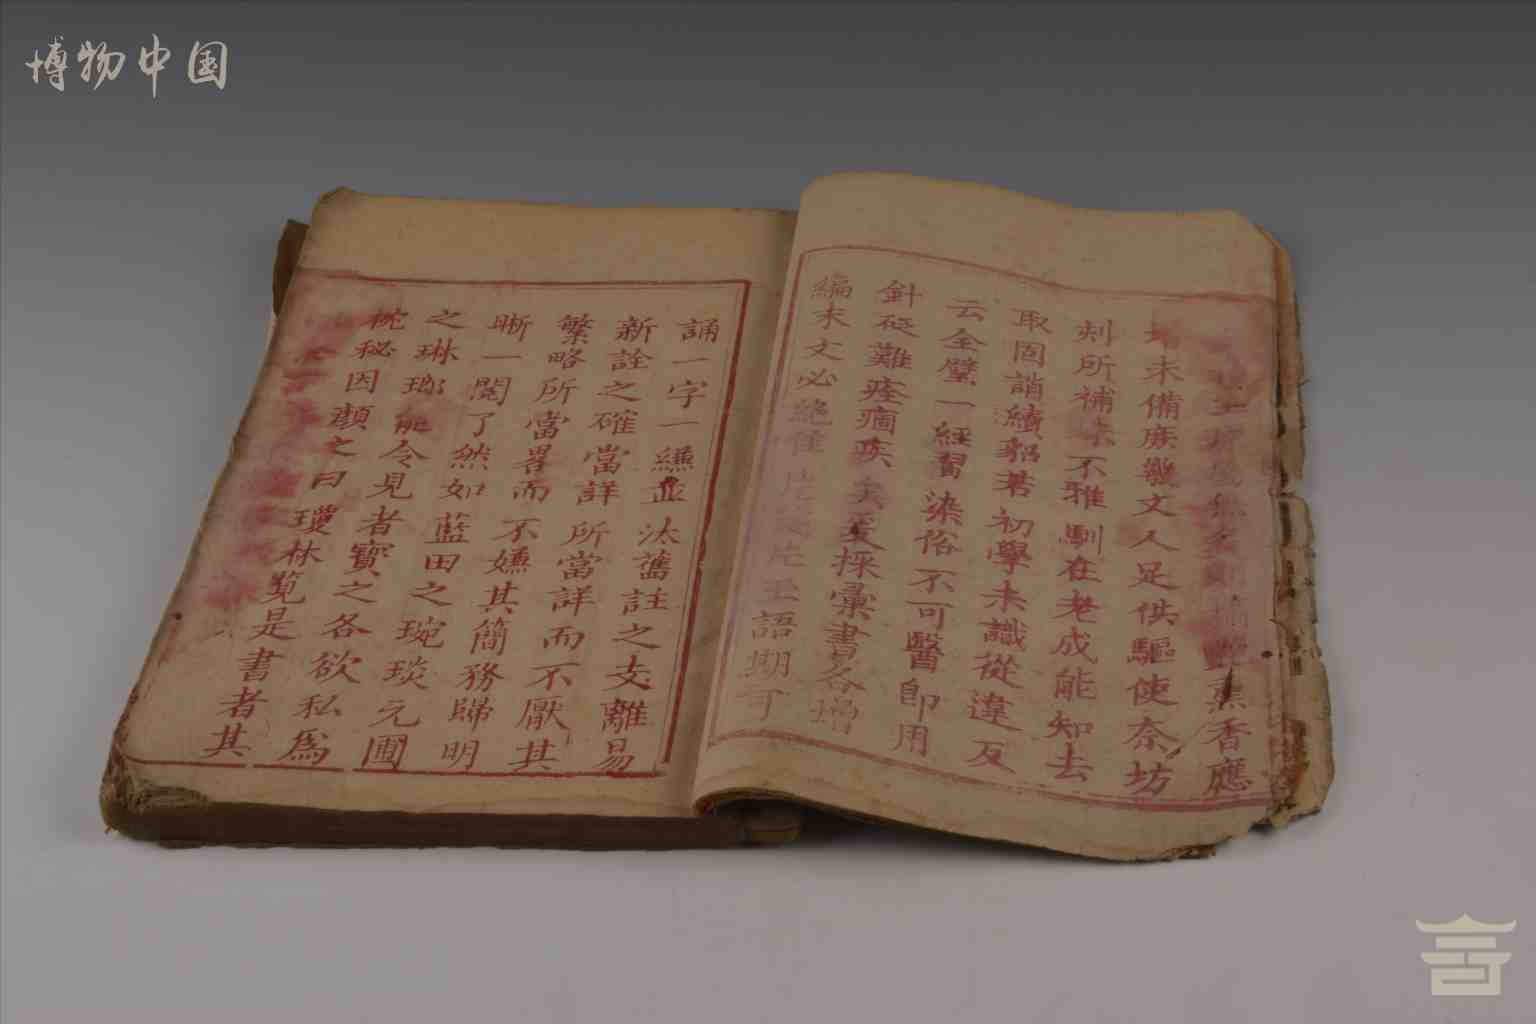 博物中国
熏香應
增末備廣幾文人足供驅使奈坊
刻所補 不雅馴在老成能知去
取固誚續貂若初學未識從違反
云全璧一經習染俗不可醫即用
針砭難痊痼疾爰採彙書各增
編末文必絕佳 玉語期可
誦一字一縑並汰舊註之支離易
新詮之確當詳所當詳而不厭其
繁略所當畧而不嫌其簡務歸明
晰一閱了然如藍田之琬琰元圃
之琳瑯能令見者寶之各欲私為
枕秘因顏之曰瓊林覽是書者其